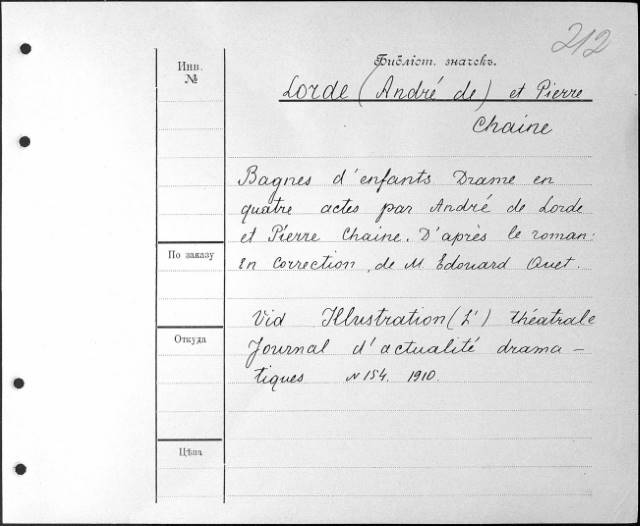 212
Библіот. значекъ.
Инв.
№
Lorde (André de) et Pierre
Chaine
Bagnes d'enfants Drame en
quatre actes par André de Lorde
et Pierre Chaine. D'après le roman:
En correction, de M Edouard Quet.
По заказу
Vid Illustration (L') théatrale
Откуда
Journal d'actualité drama-
tiques N 154. 1910.
Цѣна